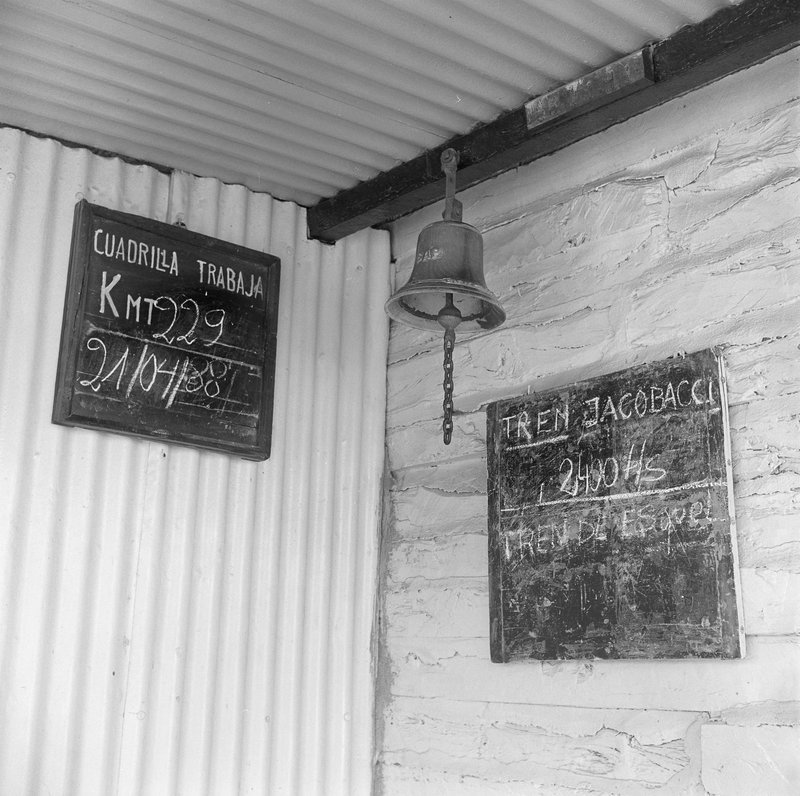 CUADRILLA TRABAJA
KMT 229
21/04/88
TREN JACOBACCI
2,400 Hs
TREN DE ESQUEL